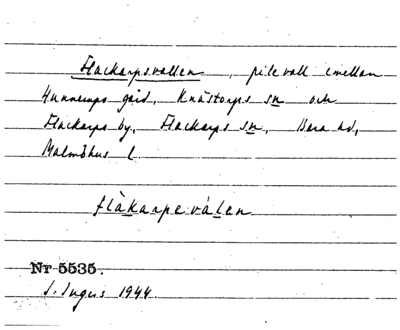 Flackarpsvallen, pilevall emellan
Gunnarps gård, Knästorps sn och
Flackarps by, Flackarps sn, Bara hd,
Malmöhus l.
flàkarpeválen
Nr 5535.
S. Ingers 1944.